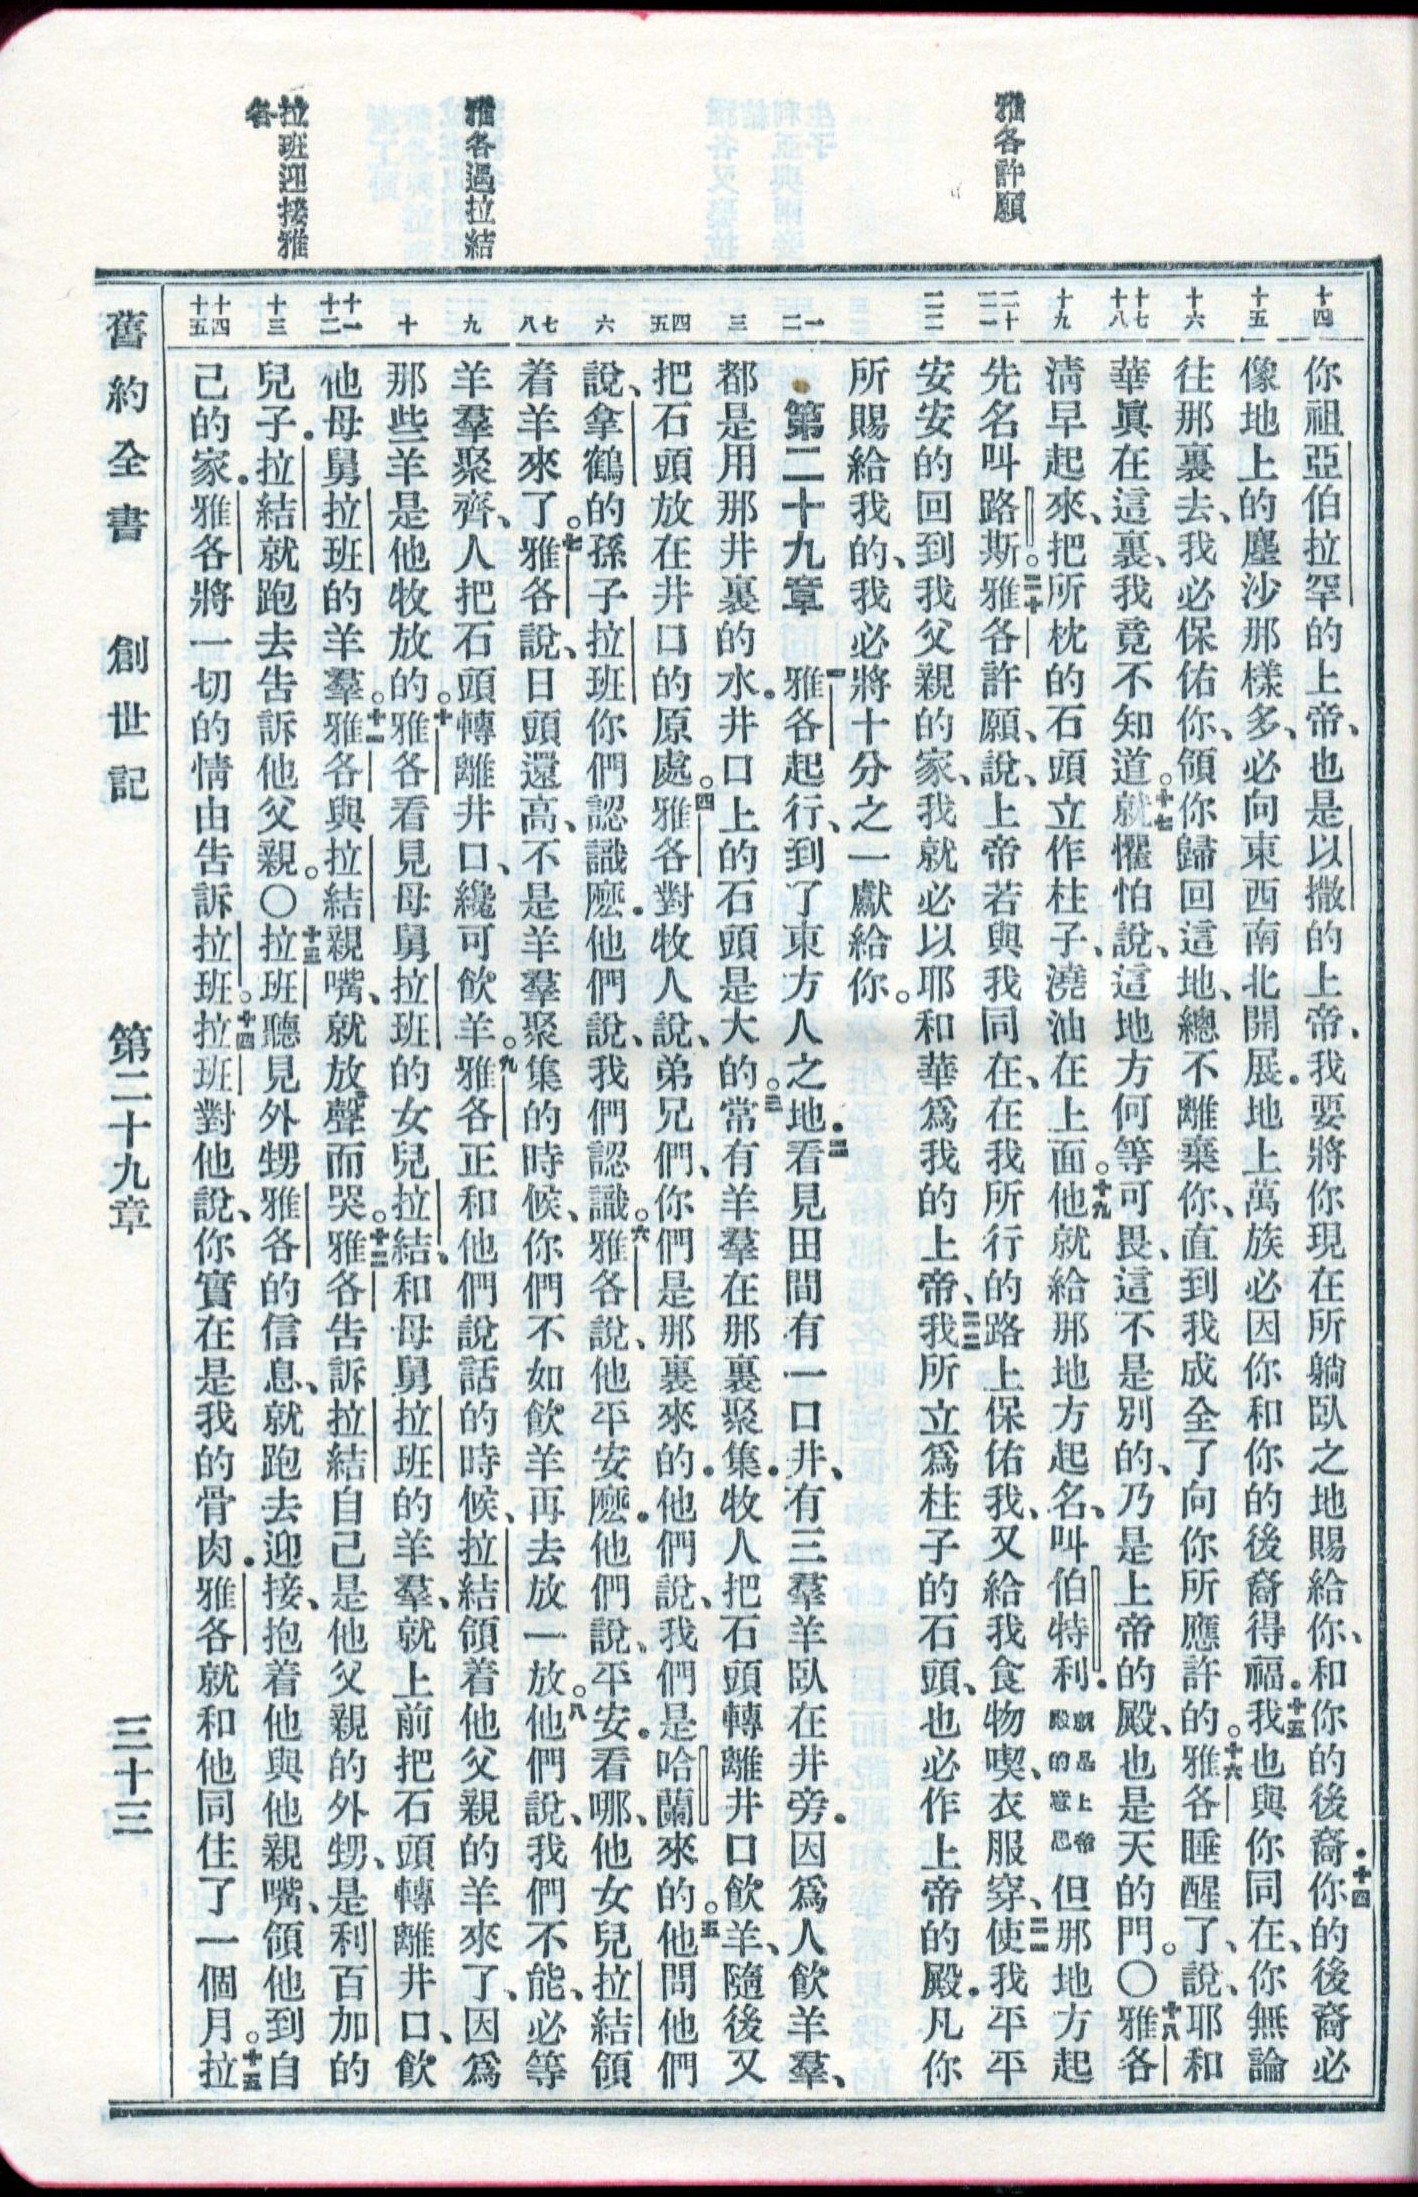 雅各許願
雅各遇拉結
拉班迎接雅
各
十四
十五
十六
十七 十八
十九
二十 二一
二二
一 二
三
四 五
六
七 八
九
十
十一 十二
十三
十四 十五
你祖亞伯拉罕的上帝、也是以撒的上帝、我要將你現在所躺臥之地賜給你、和你的後裔.十四你的後裔必
像地上的塵沙那樣多、必向東西南北開展.地上萬族必因你和你的後裔得福.十五我也與你同在、你無論
往那裏去、我必保佑你、領你歸回這地、總不離棄你、直到我成全了向你所應許的。十六雅各睡醒了、說、耶和
華眞在這裏、我竟不知道。十七就懼怕說、這地方何等可畏、這不是別的、乃是上帝的殿、也是天的門。〇十八雅各
淸早起來、把所枕的石頭立作柱子、澆油在上面。十九他就給那地方起名、叫伯特利.就是上帝殿的意思但那地方起
先名叫路斯。二十雅各許願、說、上帝若與我同在、在我所行的路上保佑我、又給我食物喫、衣服穿、二一使我平平
安安的回到我父親的家、我就必以耶和華爲我的上帝、二二我所立爲柱子的石頭、也必作上帝的殿.凡你
所賜給我的、我必將十分之一獻給你。
第二十九章 一雅各起行、到了東方人之地.二看見田間有一口井、有三羣羊臥在井旁.因爲人飮羊羣、
都是用那井裏的水.井口上的石頭是大的。三常有羊羣在那裏聚集.牧人把石頭轉離井口飮羊、隨後又
把石頭放在井口的原處。四雅各對牧人說、弟兄們、你們是那裏來的.他們說、我們是哈蘭來的。五他問他們
說、拿鶴的孫子拉班你們認識麽.他們說、我們認識。六雅各說、他平安麽.他們說、平安.看哪、他女兒拉結領
着羊來了。七雅各說、日頭還高、不是羊羣聚集的時候、你們不如飮羊再去放一放。八他們說、我們不能、必等
羊羣聚齊、人把石頭轉離井口、纔可飮羊。九雅各正和他們說話的時候、拉結領着他父親的羊來了、因爲
那些羊是他牧放的。十雅各看見母舅拉班的女兒拉結、和母舅拉班的羊羣、就上前把石頭轉離井口、飮
他母舅拉班的羊羣。十一雅各與拉結親嘴、就放聲而哭。十二雅各吿訴拉結自己是他父親的外甥、是利百加的
兒子.拉結就跑去吿訴他父親。〇十三拉班聽見外甥雅各的信息、就跑去迎接、抱着他與他親嘴、領他到自
己的家.雅各將一切的情由吿訴拉班。十四拉班對他說、你實在是我的骨肉.雅各就和他同住了一個月。十五拉
舊約全書 創世記 第二十九章 三十三